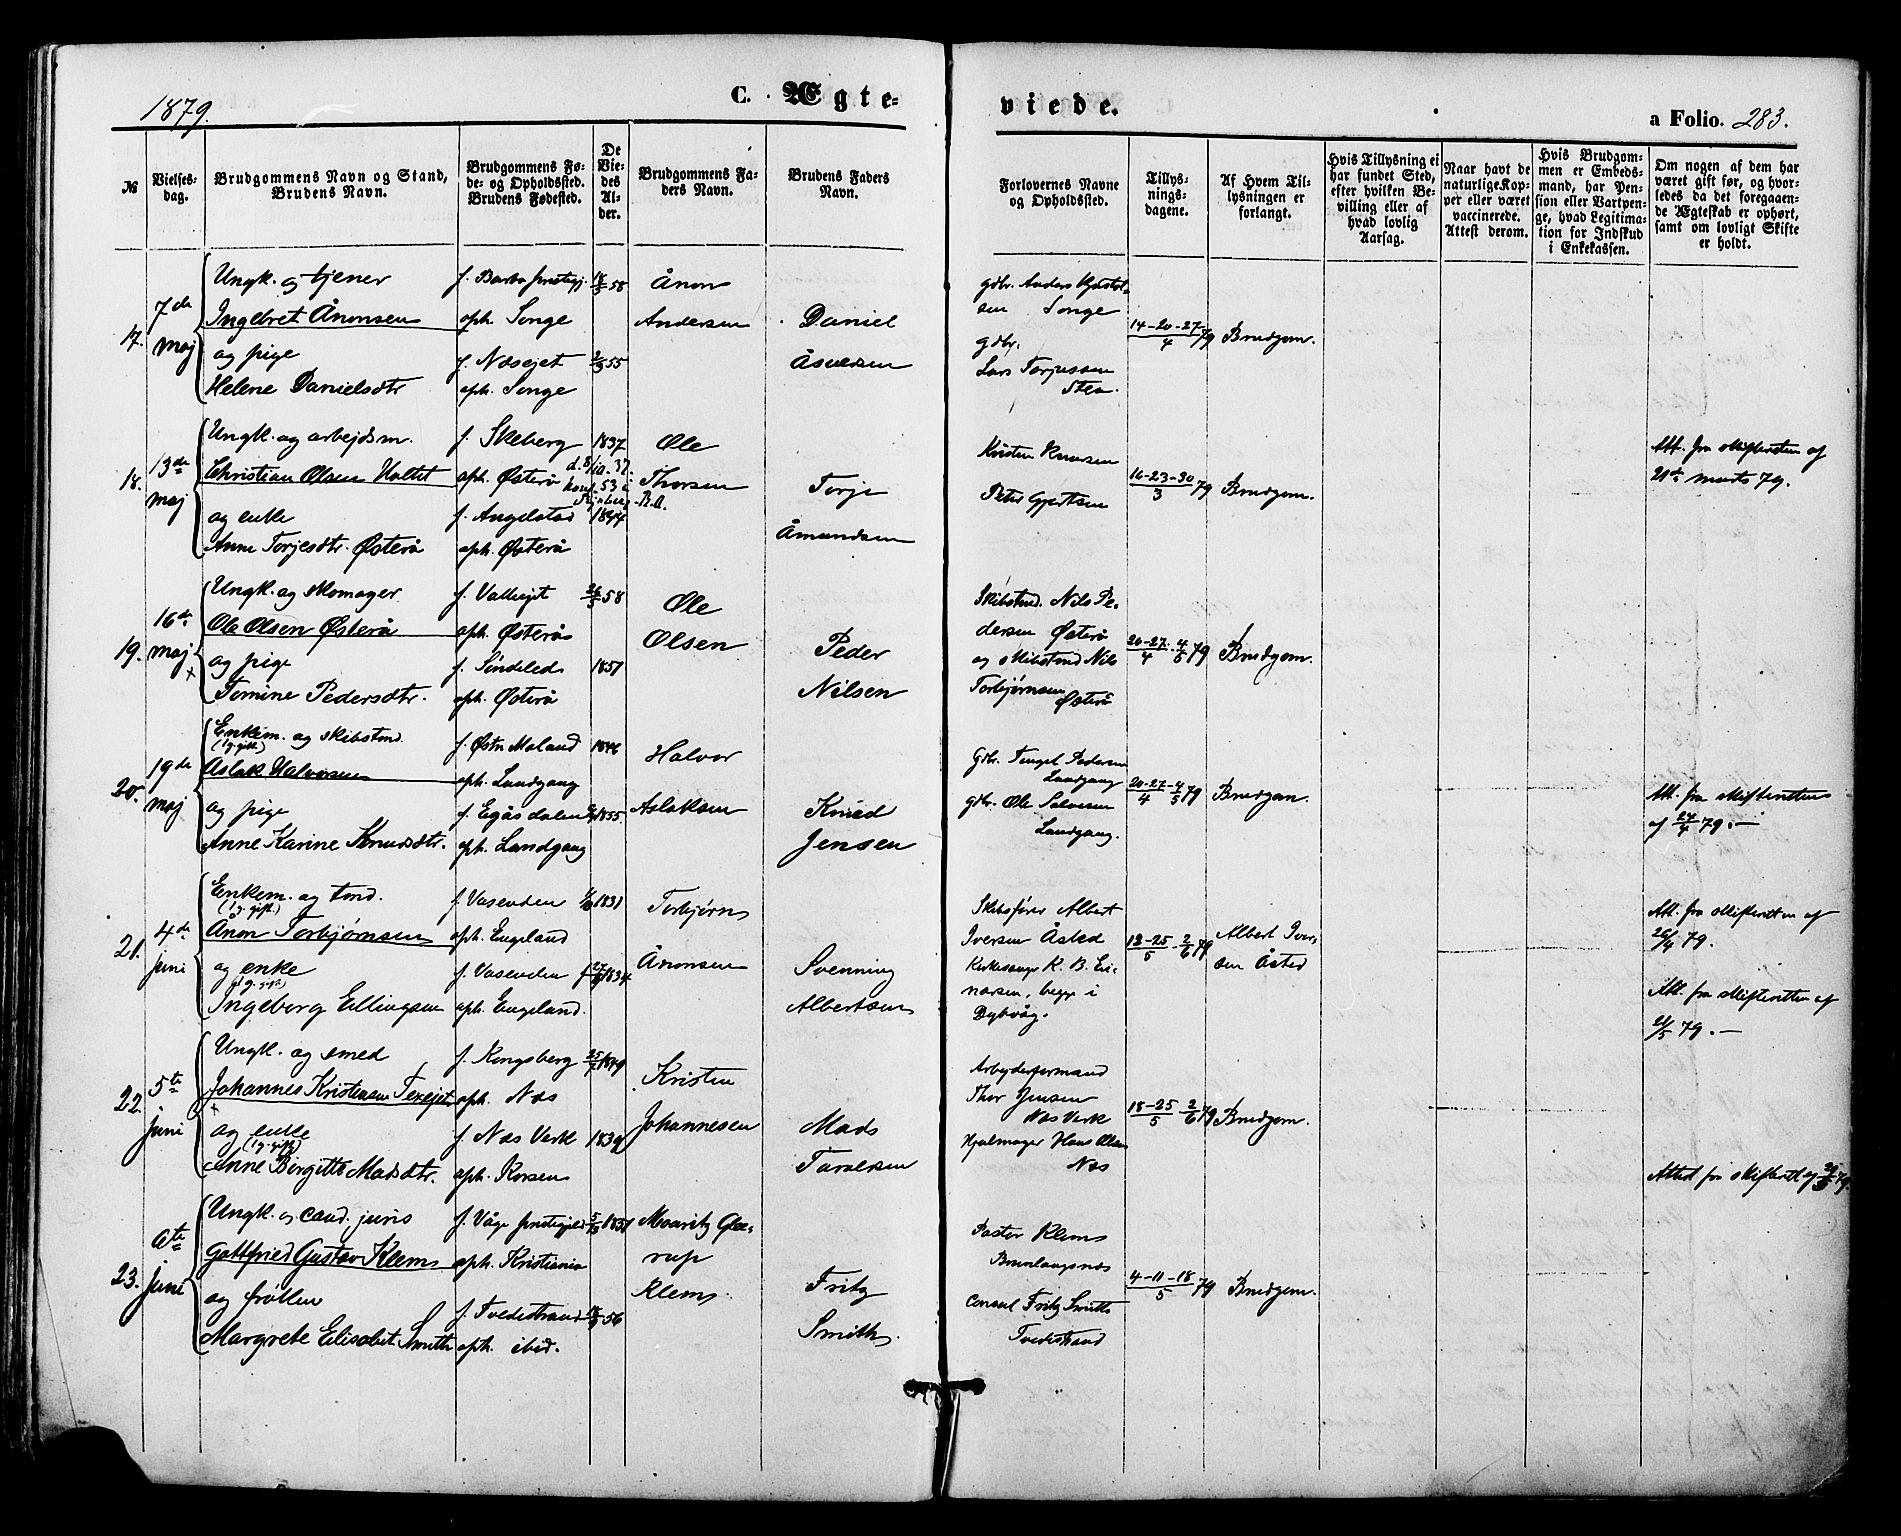 1879.
C. Ægte-
viede.
a Folio. 283.
№
Vielses-
dag.
Brudgommens Navn og Stand,
Brudens Navn.
Brudgommens Fø-
de- og Opholdssted.
Brudens Fødested.
De
Vie-
des
Al-
der.
Brudgommens Fa-
ders Navn.
Brudens Faders
Navn.
Forlovernes Navne
og Opholdssted.
Tillys-
nings-
dagene.
Af Hvem Til-
lysningen er
forlangt.
Hvis Tillysning ei
har fundet Sted,
efter hvilken Be-
villing eller af
hvad lovlig
Aarsag.
Naar havt de
naturlige Kop-
per eller været
vaccinerede.
Attest derom.
Hvis Brudgom-
men er Embeds-
mand, har Pen-
sion eller Vartpen-
ge, hvad Legitima-
tion for Indskud
i Enkekassen.
Om nogen af dem har
været gift før, og hvor-
ledes da det foregaaen-
de Ægteskab er ophørt,
samt om lovligt Skifte
er holdt.
17.
7de
maj
Ungk. og tjener
Ingebret Ånonsen
og pige
Helene Danielsdtr
f. Barbo prestegj.
oph. Songe
f. Næsejet
oph. Songe
18/3 58
2/9 55
Ånon
Andersen
Daniel
gdbr. Anders
sen Songe
gdbr.
Lars Terjussen
14-20-27/4 79
Brudgom.
18.
13de
maj
Ungk. og arbejdsm.
Christian Olsen Holtet
og enke
Anne Torjesdtr. Østerå
f. Skeberg
oph. Østerå
f. Angelstad
oph. Østerå
1837
d. 8/10. 37.
konf. 53 i
1844
Ole
Thorsen
Torje
Åmundsen
Kristen Knudsen
Peter Gjertsen
16-23-30/3 79
Brudgom.
Att. fra skifteretten af
21de marts 79.
19.
16de
maj
Ungk. og skomager
Ole Olsen Østerå
og pige
Tomine Pedersdtr.
oph. Østerå
f. Søndeled
oph. Østerå
26/3 58
1851
Ole
Olsen
Peder
Nilsen
Skibstmd. Nils Pe-
dersen Østerå
og skibstmd Nils
Torbjørnsen
Østerå
20-27/4 - 4/5 79
Brudgom.
20.
19de
maj
Enkem. og skibstmd.
(1 g. gift.)
Aslak Halvorsen
og pige
Anne Karine Knudsdtr.
f. Østre Moland
oph. Landgang
f. Egåsdalen
oph. Landgang
1846
1855.
Halvor
Aslaksen
Knud
Jensen
Gdbr. Tengel Pedersen
Landgang
gdbr. Ole Salvesen
Landgang.
20-27/4 - 4/5 79
Brudgom.
Att. fra skifteretten
af 24/4 79.-
21.
4de
juni
Enkem. og tmd.
(1 g. gift.)
Anon Torbjørnsen
og enke
(1 g. gift.)
Ingeborg Ellingsen
f. Vasenden
oph. Engeland
f. Vasenden
oph. Engeland.
1831
1834
Torbjørn
Ånonsen
Svenning
Albertsen
Skibsfører Albert
Iversen Åsted
Kirkesanger K. B. Ei-
narsen, begge i
Dybvåg.
18-25/5 - 2/6 79
Albert Iver-
sen Åsted
Att. fra skifteretten af
26/4 79.
Att. fra skifteretten af
21/5 79.-
22.
5te
juni
Ungk. og smed
Johannes Kristensen
og enke
(1 g. gift)
Anne Birgitte Madsdtr.
f. Kongsberg
oph. Næs
f. Næs Værk
oph. Korsen
25/7 1849
1839
Kristen
Johannesen
Mads
Taralsen
Arbejderformand
Thor Jensen
Næs Værk
Hjulmager Hans Olsen
Næs
18-25/5 - 2/6 79
Brudgom.
Attest fra skifteret af 79.
23.
6te
juni
Ungk. og cand. juris
Gottfried Gustav Klem
og frøken
Margrete Elisabet Smith
f. Våge prestegjeld
oph. Kristiania
f. Tvedestrand
oph. ibid.
1851
56
Mouritz Gle-
rup
Klem
Fritz
Smith.
Pastor Klem
Brunlangnæs
Consul Fritz Smith
Tvedestrand
4-11-18/5 79
Brudgom.